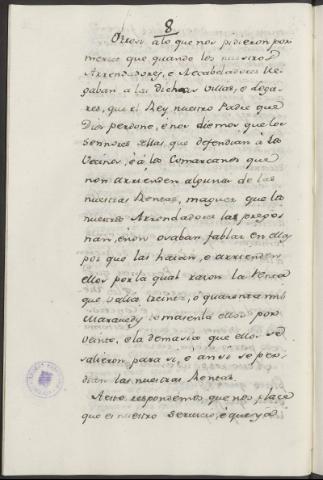 8
Otrosi à lo que nos pidieron por
merced que quando los nuestros
Arrendadores, e Recabdadores lle
gaban a las dichas villas, e loga
res, que el Rey nuestro Padre que
Dios perdone, e nos diemos, que los
Sennores dellas, que defendian à los
Vecinos, e à los Comarcanos que
non arrienden algunas de las
nuestras Rentas, maguer que los
nuestros Arrendadores las prego
nan, e non osaban fablar en ellas
por que las hayan, e arrienden
ellos por la qual razon la renta
que valia treinta, o quarenta mil
Maravedis tomasenla ellos por
veinte, e la demasia que ellos se
salieron para si, e ansi se per
dian las nuestras Rentas.
A esto respondemos que nos place
que es nuestro servicio, e que ya